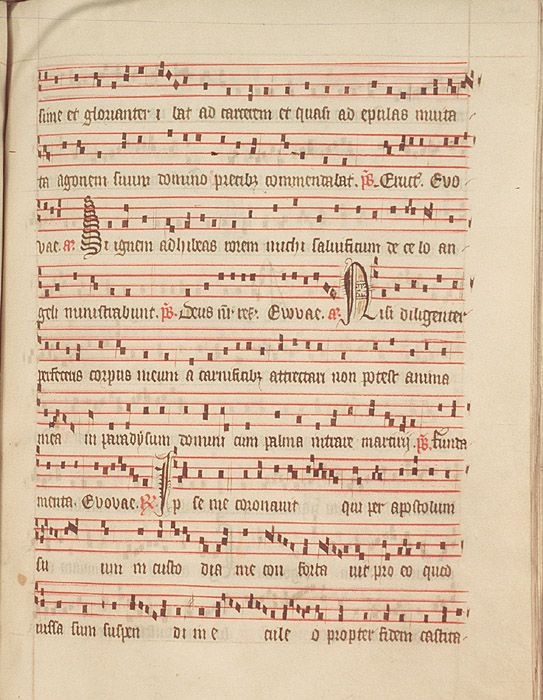 sime et glorianter i bat ad carcerem et quasi ad epulas invita
ta agonem suum domino precibꝫ commendabat. ps. Eruct. Evo
vae. a. Si ignem adhibeas rorem michi salvificum de ce lo an
geli ministrabunt. ps. Deus nr̄ ref. Evovae. a. Nisi diligenter
perfeceris corpus meum a carnificibꝫ attrectari non potest anima
mea in paradysum domini cum palma intrare martirij. ps. Funda
menta. Evovae. R. Ip se me coronavit qui per apostolum
su um in custo dia me con forta vit pro eo quod
iussa sum suspen di in e cule o propter fidem castita